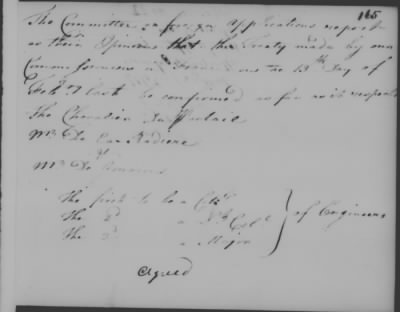 165
The Committee on foreign applications report
as their Opinion that the Treaty made by our
Commissioners in France on the 13th Day of
Feb.y last be confirmed so far as it respects
The Chevalier Du Portail
Mr De La Radiere
Mr De Gouvion
The first to be a Coll
The 2d a Lt Coll
The 3d a Major
of Engineers
Agreed